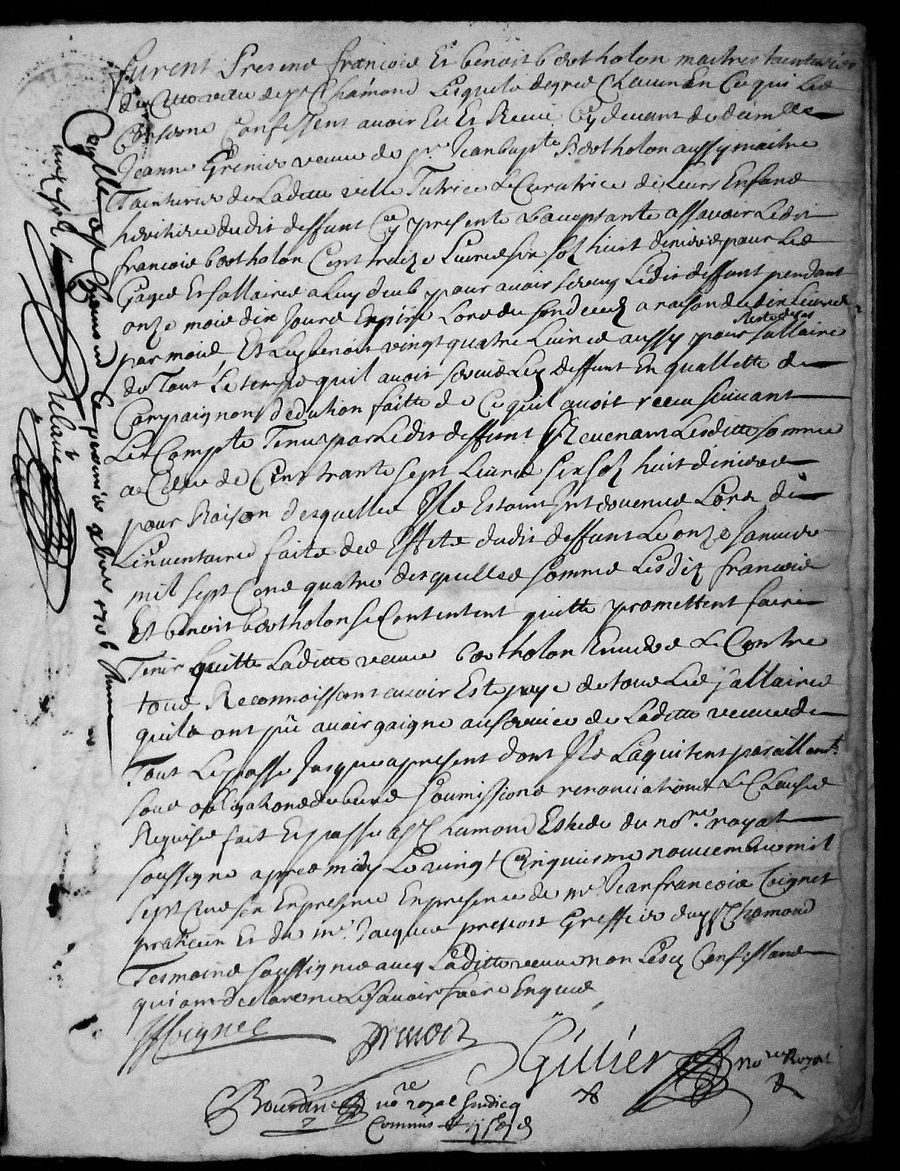 furent Presens françois Et benoit bertholon maitres tainturiers
de Cette ville de St Chamond Lesquels de gré Chacun En Ce qui Les
Conserne Confessent avoir Eu Et Receu Cy devant de demlle
Jeanne Grenier veuve de Sr Jean bapte Bertholon aussy maitre
Tainturier de Laditte ville Tutrice Et Curatrice de Leurs Enfans
heritiers dudit deffunt Cy presente Lacceptante assavoir Ledit
françois bertholon Cent traize Livres six solz huit deniers pour Les
Gages Et sallaires a Luy deub pour avoir servy Ledit deffunt pendant
onze mois dix Jours Expirés Lors du son decez a raison de dix Livres
par mois Et Ledt benoit vingt quatre Livres aussy pour Reste de ses sallaires
de Tout Le temps quil avoit servie Led deffunt En quallitte de
Compaignon deduction faitte de Ce quil avoit receu suivant
Le Compte Tenus par Ledit deffunt Revenant Lesdittes sommes
a Celle de Cent trante sept Livres six solz huit deniers
pour Raison desquelles Ils Estoint Intervenus Lors de
Linventaire faite des Effets dudit deffunt Le onze Janvier
mil sept Cens quatre desquelles sommes Lesdits françois
Et benoit bertholon se Contentent quitte promettent faire
Tenir quitte Laditte veuve bertholon Envers Et Contre
tous Reconnoissant avoir Esté payé de tous Les sallaires
quils ont pû avoir gaigné au service de Laditte veuve de
Tout Le passé Jusques a present dont Ils Laquitent pareillemt
sous obligations de biens soumissions renonciations Et Clauses
Requises fait Et passé a St Chamond Estude du nore royal
soussigné apres midy Le vingt Cinquiesme novembre mil
sept Cens six En presence En presence de me Jean françois Coignet
praticien Et de me Jacques prevost Greffier du St Chamond
Tesmoins soussignés avec Laditte veuve non Lesd Confessans
qui ont declaré ne Le savoir faire Enquis
JfCoignet
prevost
Gillier nore Royal
Bourdin nore royal sindicq
Commis
Con̄llé a St Chamond Le premier xbre 1706